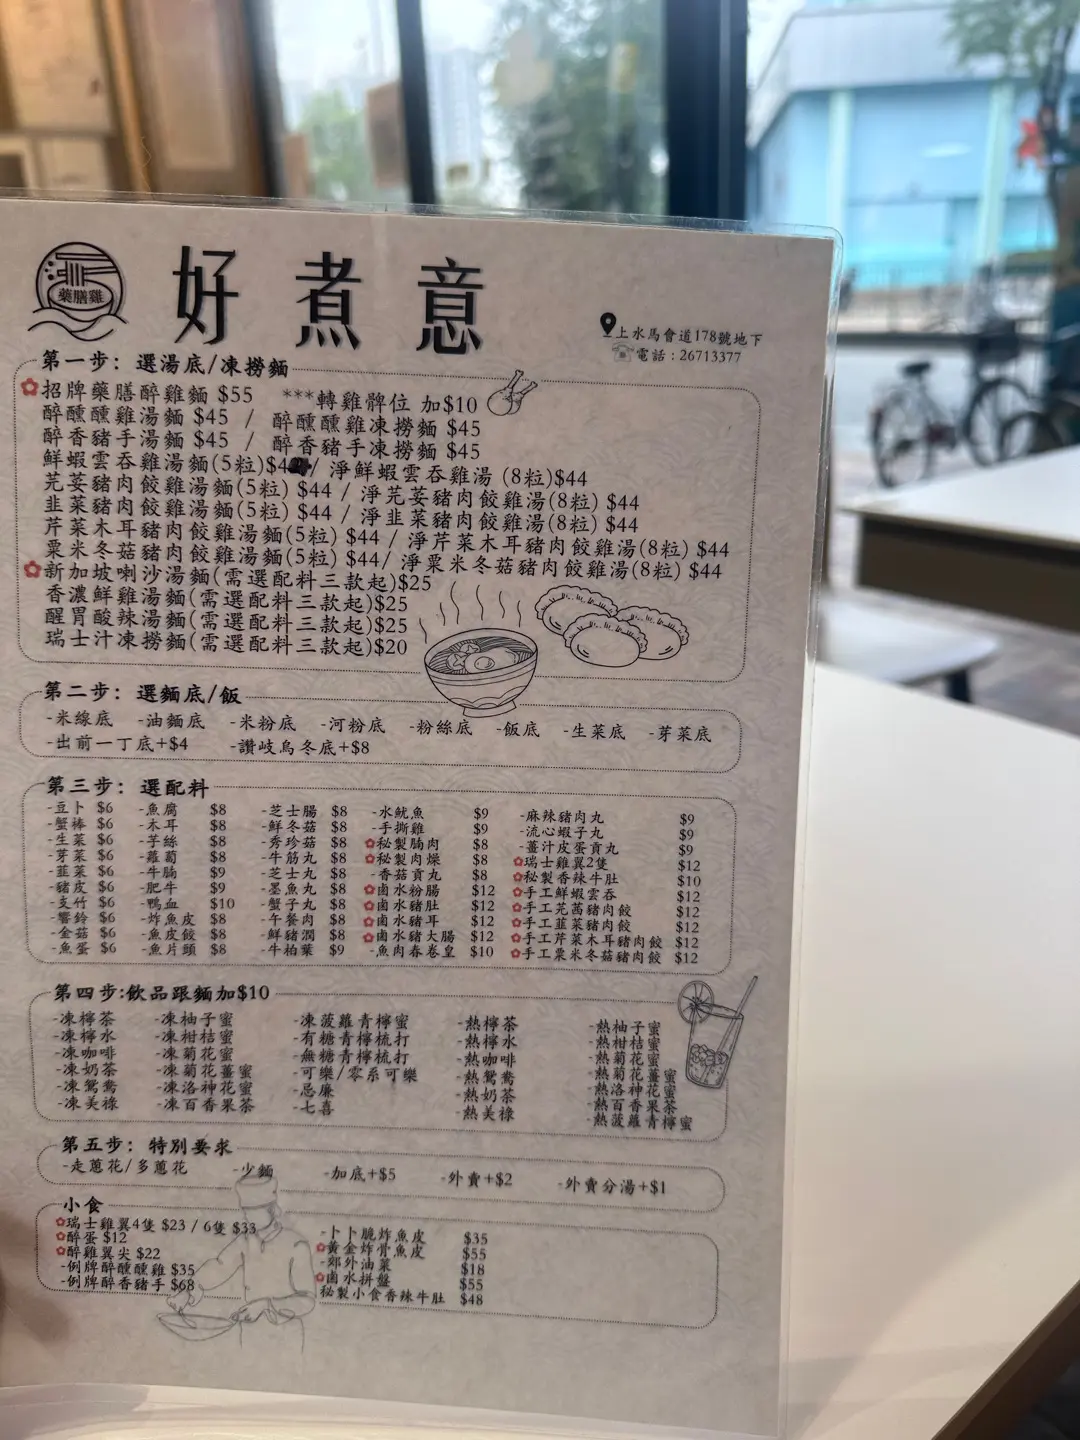 藥膳雞
好煮意
上水馬會道178號地下
電話：26713377
第一步：選湯底/凍撈麵
招牌藥膳醉雞麵 $55 ***轉雞髀位 加$10
醉醺醺雞湯麵 $45 / 醉醺醺雞凍撈麵 $45
醉香豬手湯麵 $45 / 醉香豬手凍撈麵 $45
鮮蝦雲吞雞湯麵(5粒)$4 / 淨鮮蝦雲吞雞湯 (8粒)$44
芫荽豬肉餃雞湯麵(5粒) $44 / 淨芫荽豬肉餃雞湯(8粒) $44
韭菜豬肉餃雞湯麵(5粒) $44 / 淨韭菜豬肉餃雞湯(8粒) $44
芹菜木耳豬肉餃雞湯麵(5粒) $44 / 淨芹菜木耳豬肉餃雞湯(8粒) $44
粟米冬菇豬肉餃雞湯麵(5粒) $44/ 淨粟米冬菇豬肉餃雞湯(8粒) $44
新加坡喇沙湯麵(需選配料三款起)$25
香濃鮮雞湯麵(需選配料三款起)$25
醒胃酸辣湯麵(需選配料三款起)$25
瑞士汁凍撈麵(需選配料三款起)$20
第二步：選麵底/飯
-米線底 -油麵底 -米粉底 -河粉底 -粉絲底 -飯底 -生菜底 -芽菜底
-出前一丁底+$4 -讚岐烏冬底+$8
第三步：選配料
-豆卜 $6
-蟹棒 $6
-生菜 $6
-芽菜 $6
-韮菜 $6
-豬皮 $6
-支竹 $6
-響鈴 $6
-金菇 $6
-魚蛋 $6
-魚腐 $8
-木耳 $8
-芋絲 $8
-蘿蔔 $8
-牛腩 $9
-肥牛 $9
-鴨血 $10
-炸魚皮 $8
-魚皮餃 $8
-魚片頭 $8
-芝士腸 $8
-鮮冬菇 $8
-秀珍菇 $8
-牛筋丸 $8
-芝士丸 $8
-墨魚丸 $8
-蟹子丸 $8
-午餐肉 $8
-鮮豬潤 $8
-牛柏葉 $9
-水魷魚 $9
-手撕雞 $9
秘製腩肉 $8
秘製肉燥 $8
-香菇貢丸 $8
鹵水粉腸 $12
鹵水豬肚 $12
鹵水豬耳 $12
鹵水豬大腸 $12
-魚肉春卷皇 $10
-麻辣豬肉丸 $9
-流心蝦子丸 $9
-薑汁皮蛋貢丸 $9
瑞士雞翼2隻 $12
秘製香辣牛肚 $10
手工鮮蝦雲吞 $12
手工芫茜豬肉餃 $12
手工韮菜豬肉餃 $12
手工芹菜木耳豬肉餃 $12
手工粟米冬菇豬肉餃 $12
第四步:飲品跟麵加$10
-凍檸茶
-凍檸水
-凍咖啡
-凍奶茶
-凍鴛鴦
-凍美祿
-凍柚子蜜
-凍柑桔蜜
-凍菊花蜜
-凍菊花薑蜜
-凍洛神花蜜
-凍百香果茶
-凍菠蘿青檸蜜
-有糖青檸梳打
-無糖青檸梳打
-可樂/零系可樂
-忌廉
-七喜
-熱檸茶
-熱檸水
-熱咖啡
-熱鴛鴦
-熱奶茶
-熱美祿
-熱柚子蜜
-熱柑桔蜜
-熱菊花蜜
-熱菊花薑蜜
-熱洛神花蜜
-熱百香果茶
-熱菠蘿青檸蜜
第五步：特別要求
-走蔥花/多蔥花 -少麵 -加底+$5 -外賣+$2 -外賣分湯+$1
小食
瑞士雞翼4隻 $23 / 6隻 $33
醉蛋 $12
醉雞翼尖 $22
-例牌醉醺醺雞 $35
-例牌醉香豬手 $68
-卜卜脆炸魚皮 $35
黃金炸骨魚皮 $55
-郊外油菜 $18
鹵水拼盤 $55
秘製小食香辣牛肚 $48